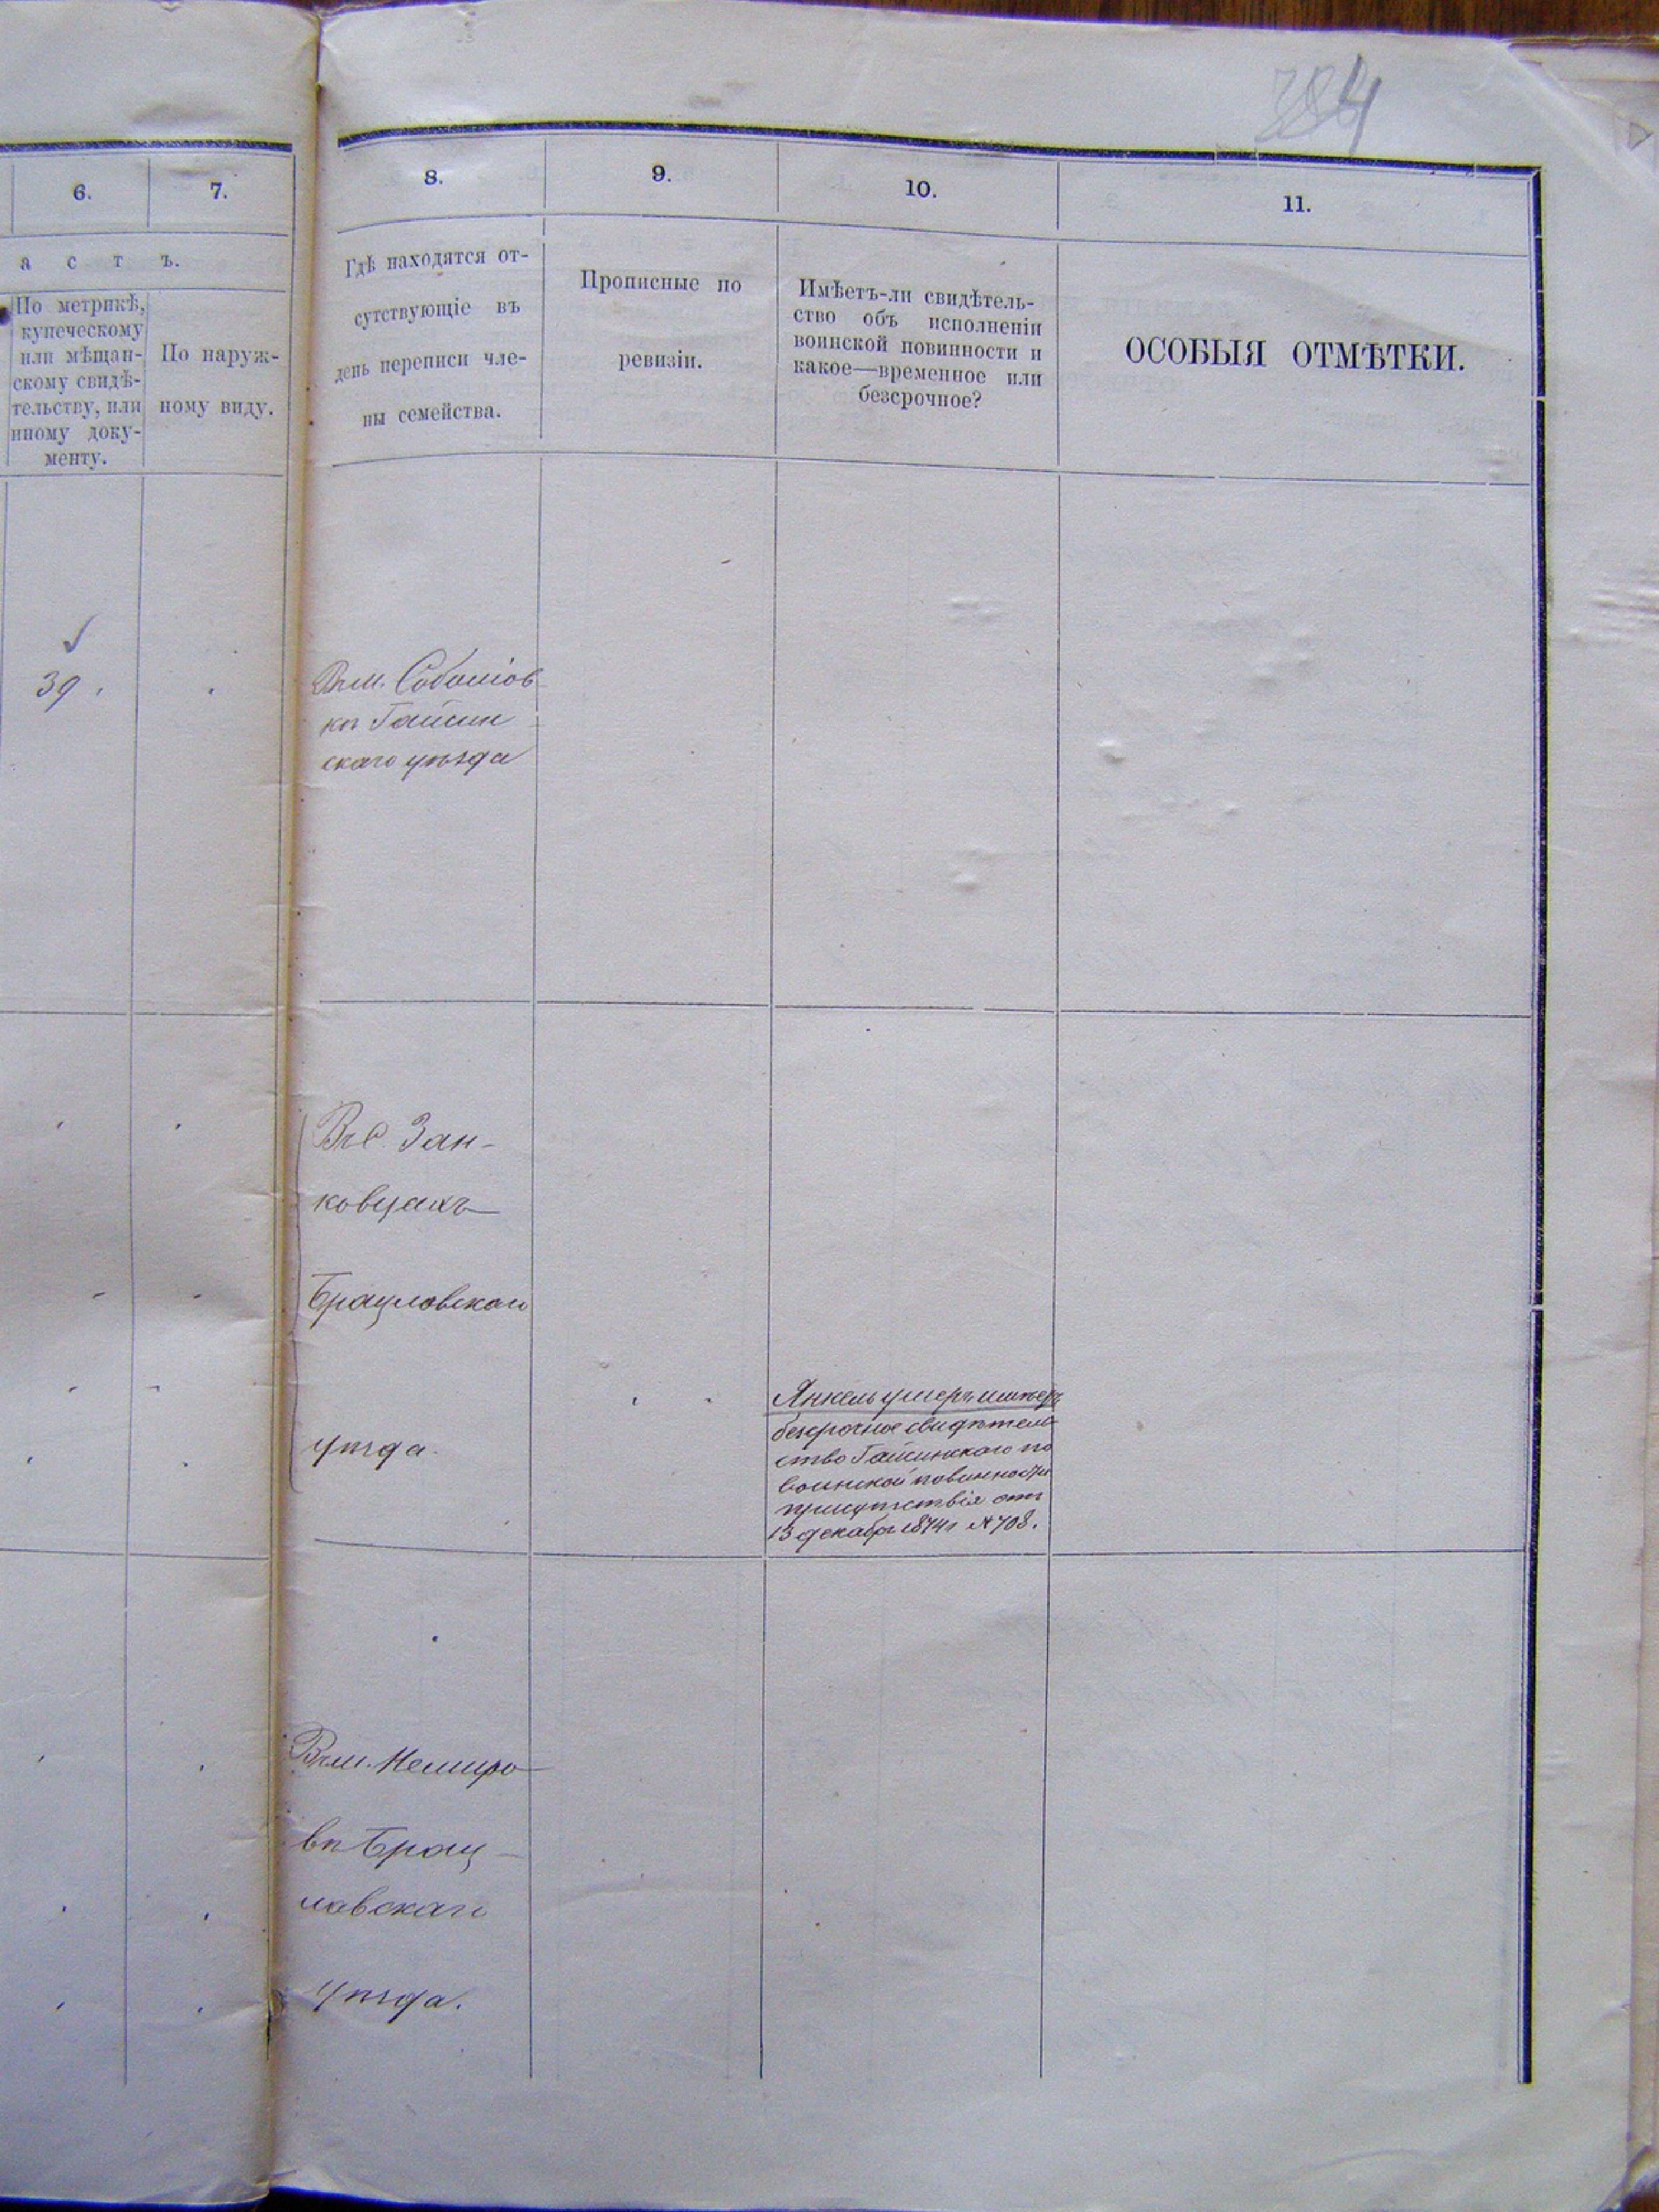 384
6.
7.
8.
9.
10.
11.
а с т ъ.
По метрикѣ,
купеческому
или мѣщан-
скому свидѣ-
тельству, или
иному доку-
менту.
По наруж-
ному виду.
Гдѣ находятся от-
сутствующіе въ
день переписи чле-
ны семейства.
Прописные по
ревизіи.
Имѣетъ-ли свидѣтель-
ство объ исполненіи
воинской повинности и
какое—временное или
безсрочное?
ОСОБЫЯ ОТМѢТКИ.
39
Въ м. Соболіов
кѣ Гайсин
скаго уѣзда
Въ с. Зан-
ковцахъ
Брацловскаго
уѣзда.
Янкель Ушеръ имѣетъ
безсрочное свидѣтель
ство Гайсинскаго по
воинской повинности
присутствія отъ
13 декабр 1874 г №708.
Въ м. Немиро
вѣ Брац-
лавскаго
уѣзда.